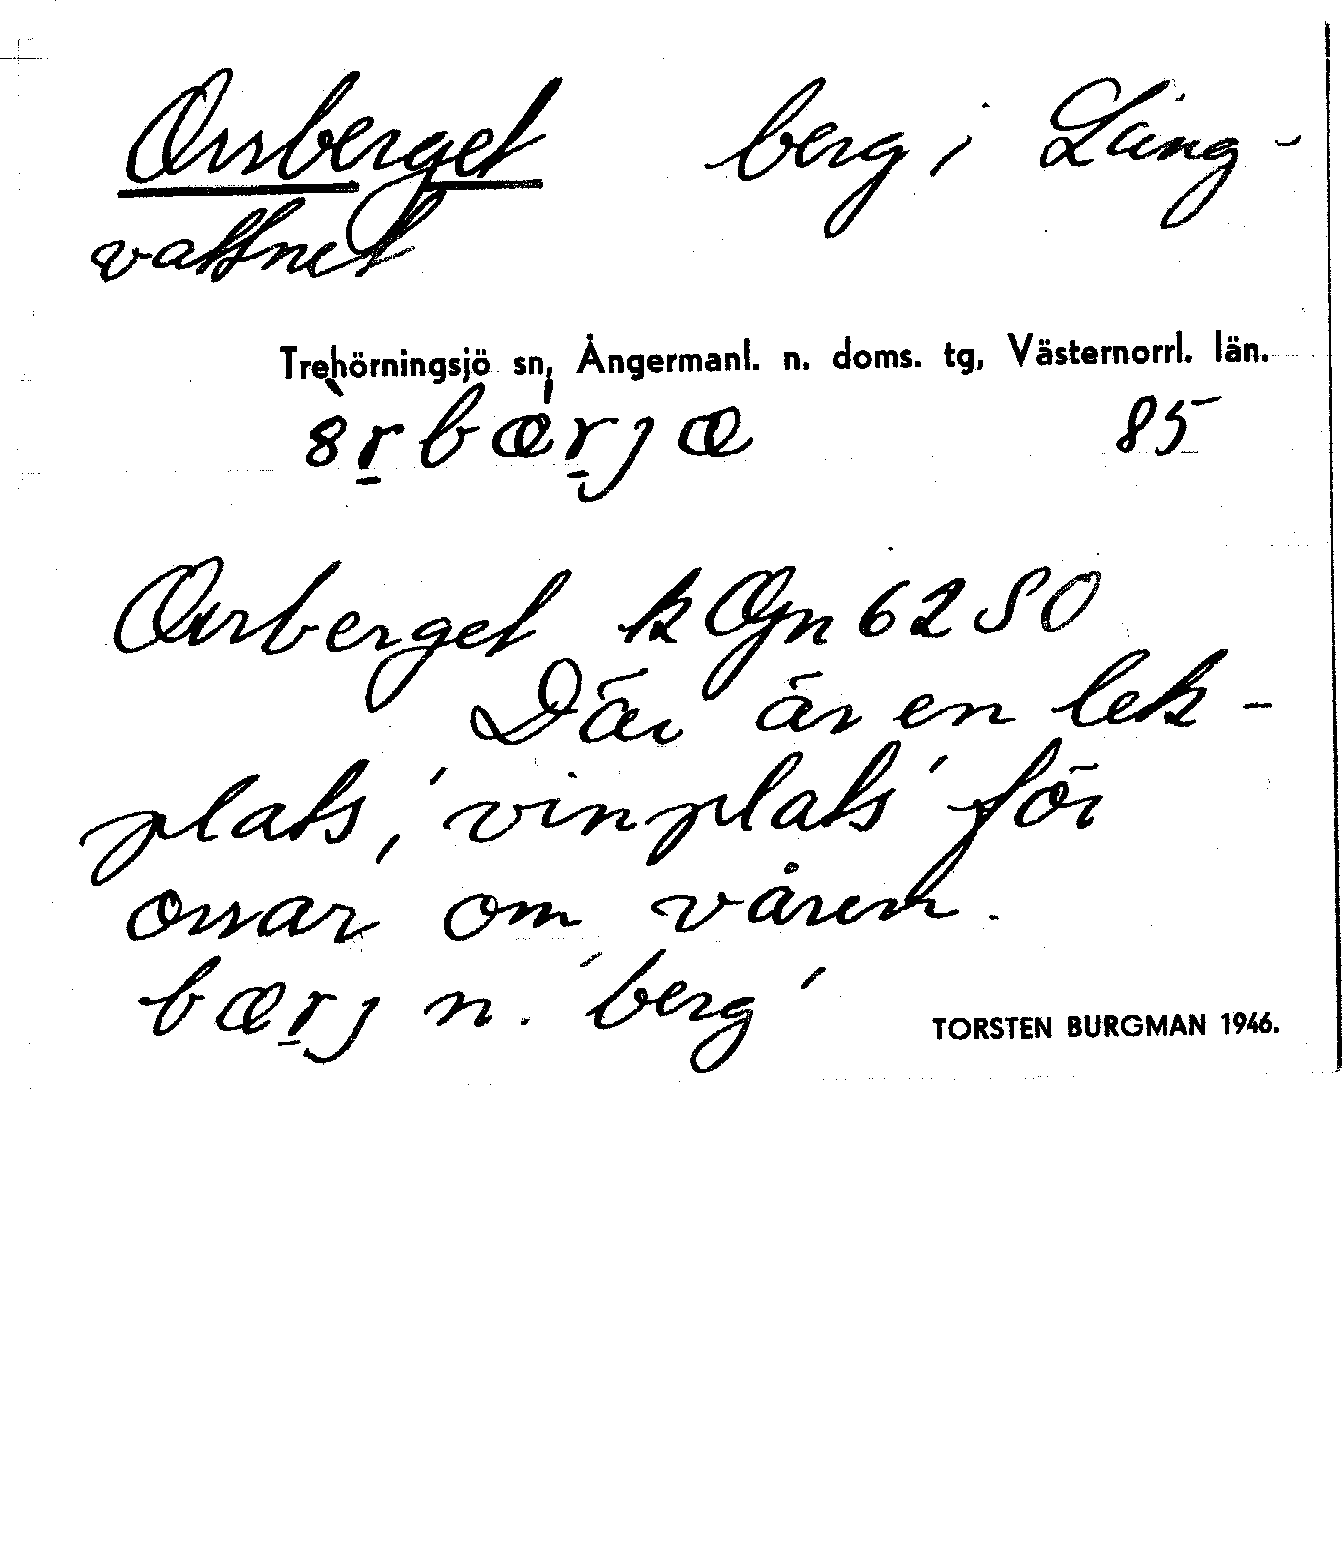 Orrberget berg i Lång-
vattnet
Trehörningsjö sn, Ångermanl. n. doms. tg, Västernorrl. län.
8r̲bær̲jæ 85
Orrberget k Ogn 6280
Där är en lek-
plats, 'vinplats' för
orrar om våren.
bær̲j n. 'berg'
TORSTEN BURGMAN 1946.